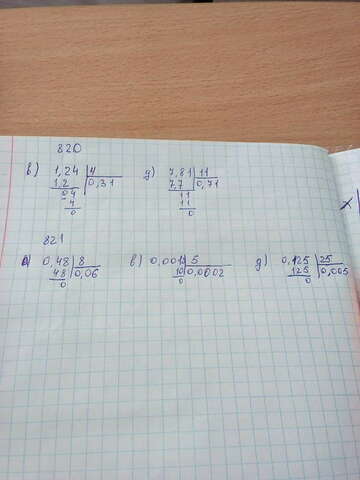 820
в) 1,24 | 4 д) 7,81 | 11
1,2 | 0,31 7,7 | 0,71
04 11
4 11
0 0
821
а) 0,48 | 8 в) 0,001 | 5 д) 0,125 | 25
48 | 0,06 10 | 0,0002 125 | 0,005
0 0 0